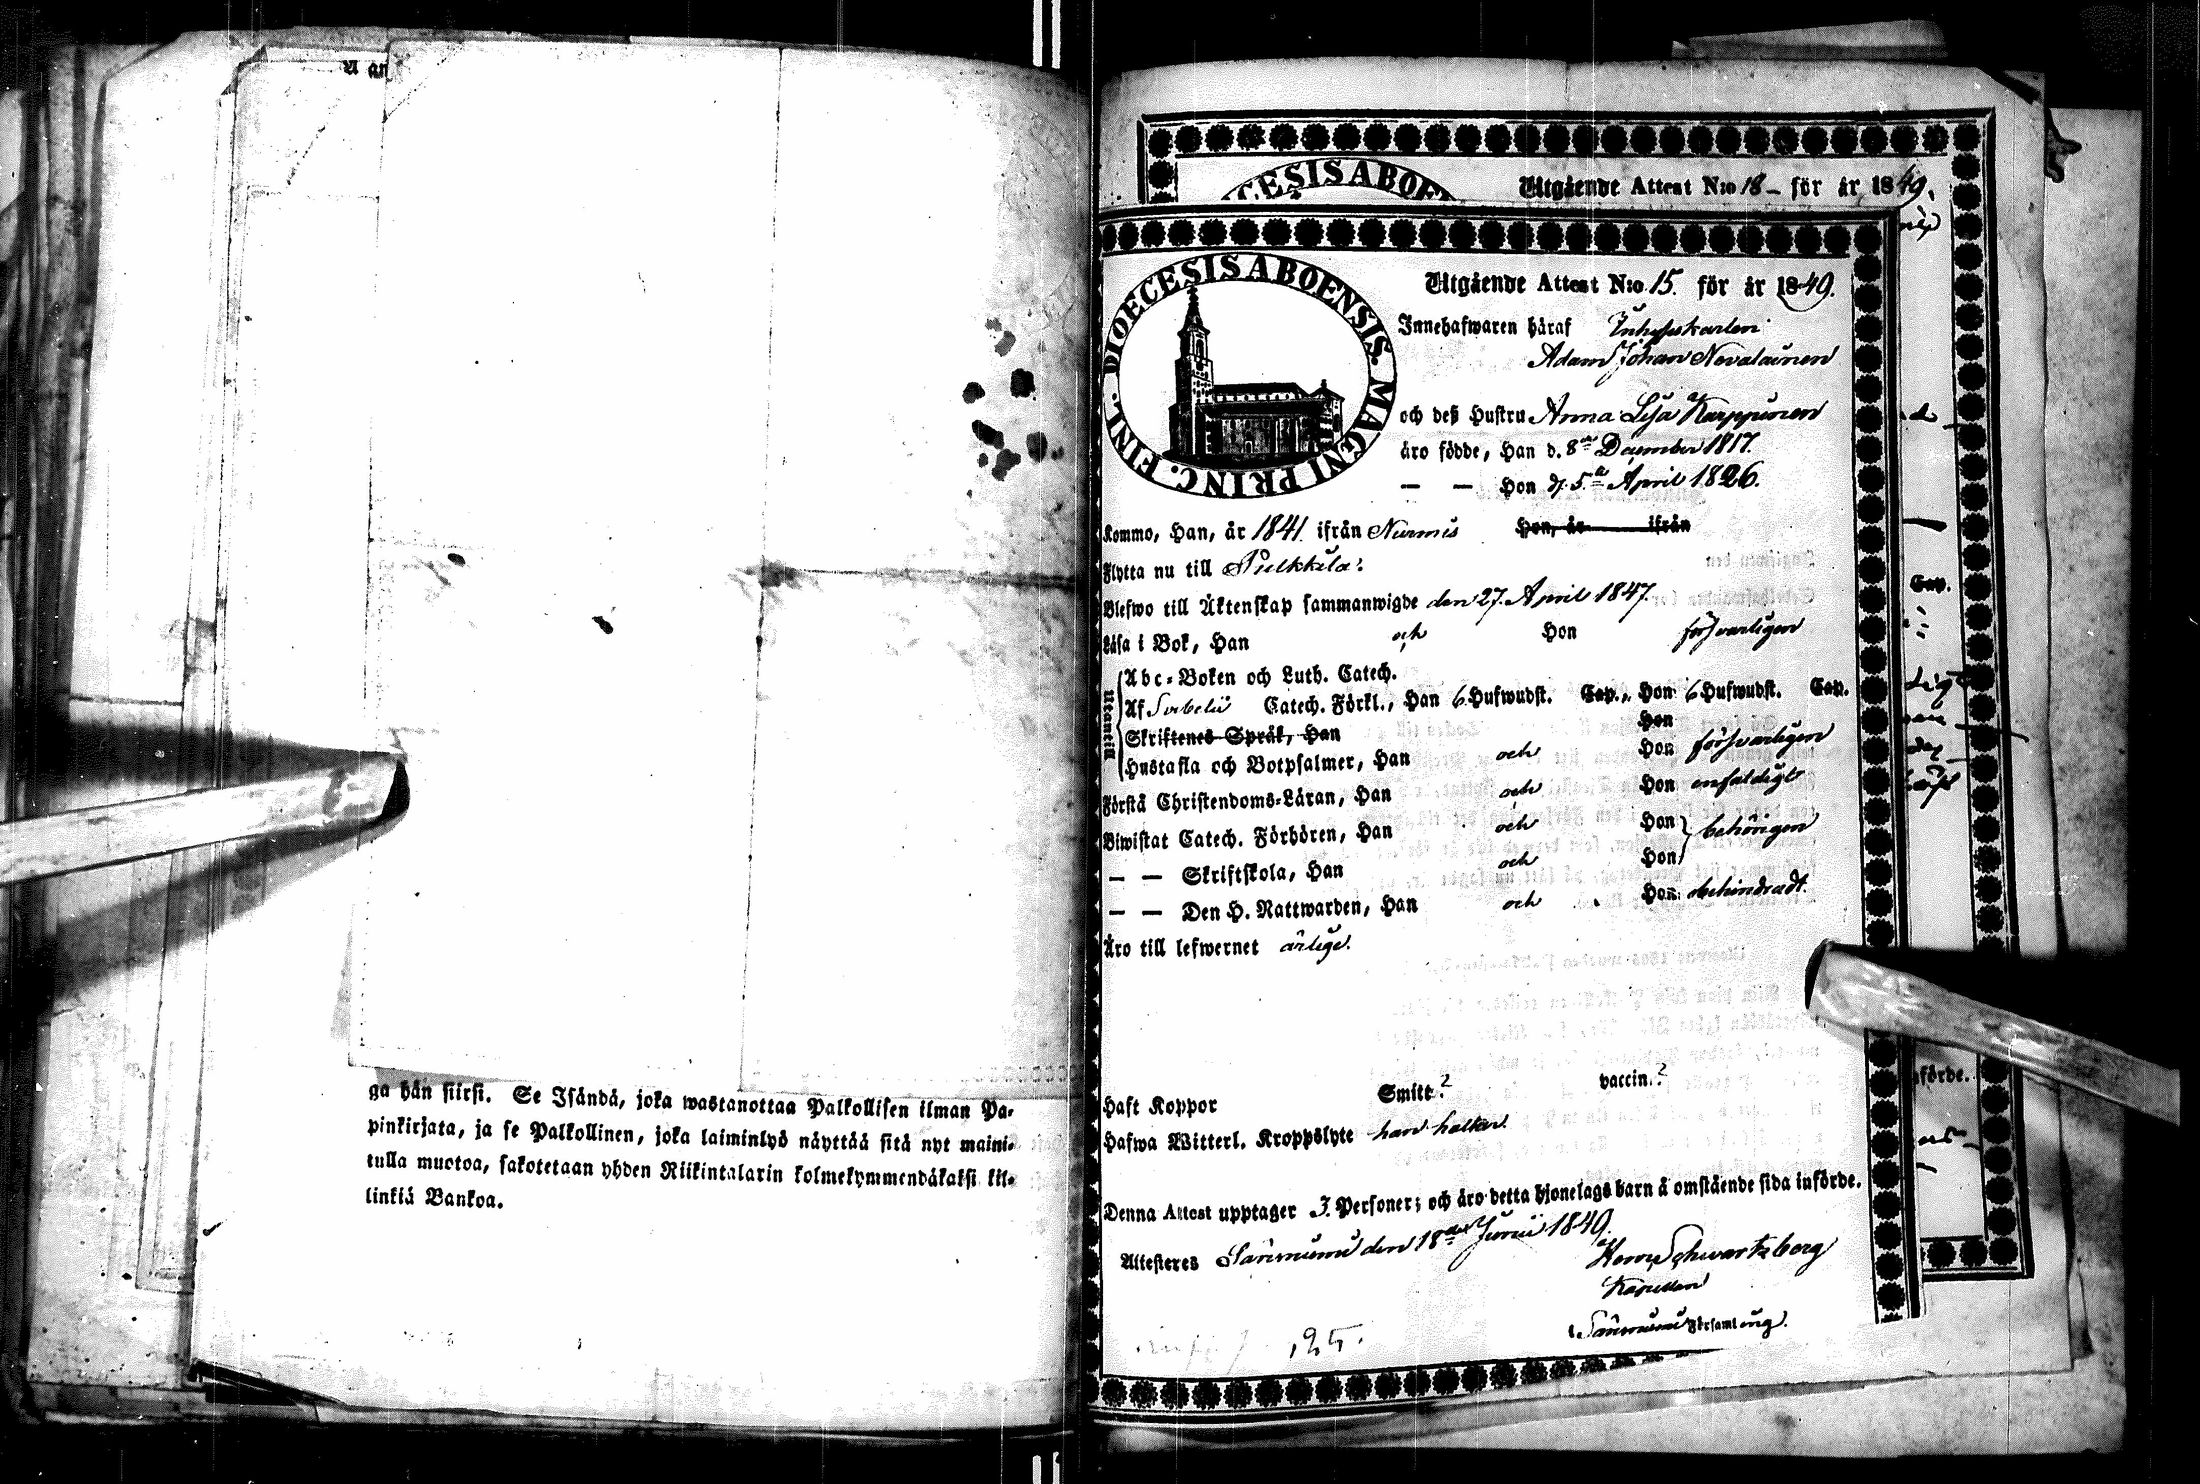 A an
ga hän siirsi. Se Isändä, joka wastanottaa Palkollisen ilman Pa-
pinkirjata, ja se Palkollinen, joka laiminlyö näyttää sitä nyt maini-
tulla muotoa, sakotetaan yhden Riikintalarin kolmekymmendäkaksi kil-
linkiä Bankoa.
CESIS ABOE
Utgående Attest N:o 18 - för år 1849.
DIOECESIS ABOENSIS. MAGNI PRINC. FINL.
Utgående Attest N:o 15. för år 1849.
Innehafwaren häraf Inhyseskarlen
Adam Johan Nevalainen
och deß Hustru Anna Lisa Karppinen
äro födde, Han d. 8de December 1817.
— — Hon d. 5te April 1826.
Kommo, Han, år 1841 ifrån Nurmis Hon, år ifrån
Flytta nu till Pulkkila.
Blefwo till Äktenskap sammanwigde den 27. April 1847.
Läsa i Bok, Han och Hon försvarligen
Utantill
Abc-Boken och Luth. Catech.
Af Svebelii Catech. Förkl., Han 6 Hufwudst. Cap., Hon 6 Hufwudst. Cap.
Skriftenes Språk, Han Hon
Hustafla och Botpsalmer, Han och Hon försvarligen
Förstå Christendoms-Läran, Han och Hon enfaldigt
Biwistat Catech. Förhören, Han och Hon behörigen
— — Skriftskola, Han och Hon
— — Den H. Nattwarden, Han och Hon obehindradt.
Äro till lefwernet ärlige.
Haft Koppor Smitt. ? vaccin. ?
Hafwa Witterl. Kroppslyte han haltar
Denna Attest upptager 3. Personer; och äro detta hjonelags barn å omstående sida införde.
Attesteres Säräisniemi den 18de Junii 1849.
Schwartzberg
Kapellan
Församling.
125.
Cap.
införde.